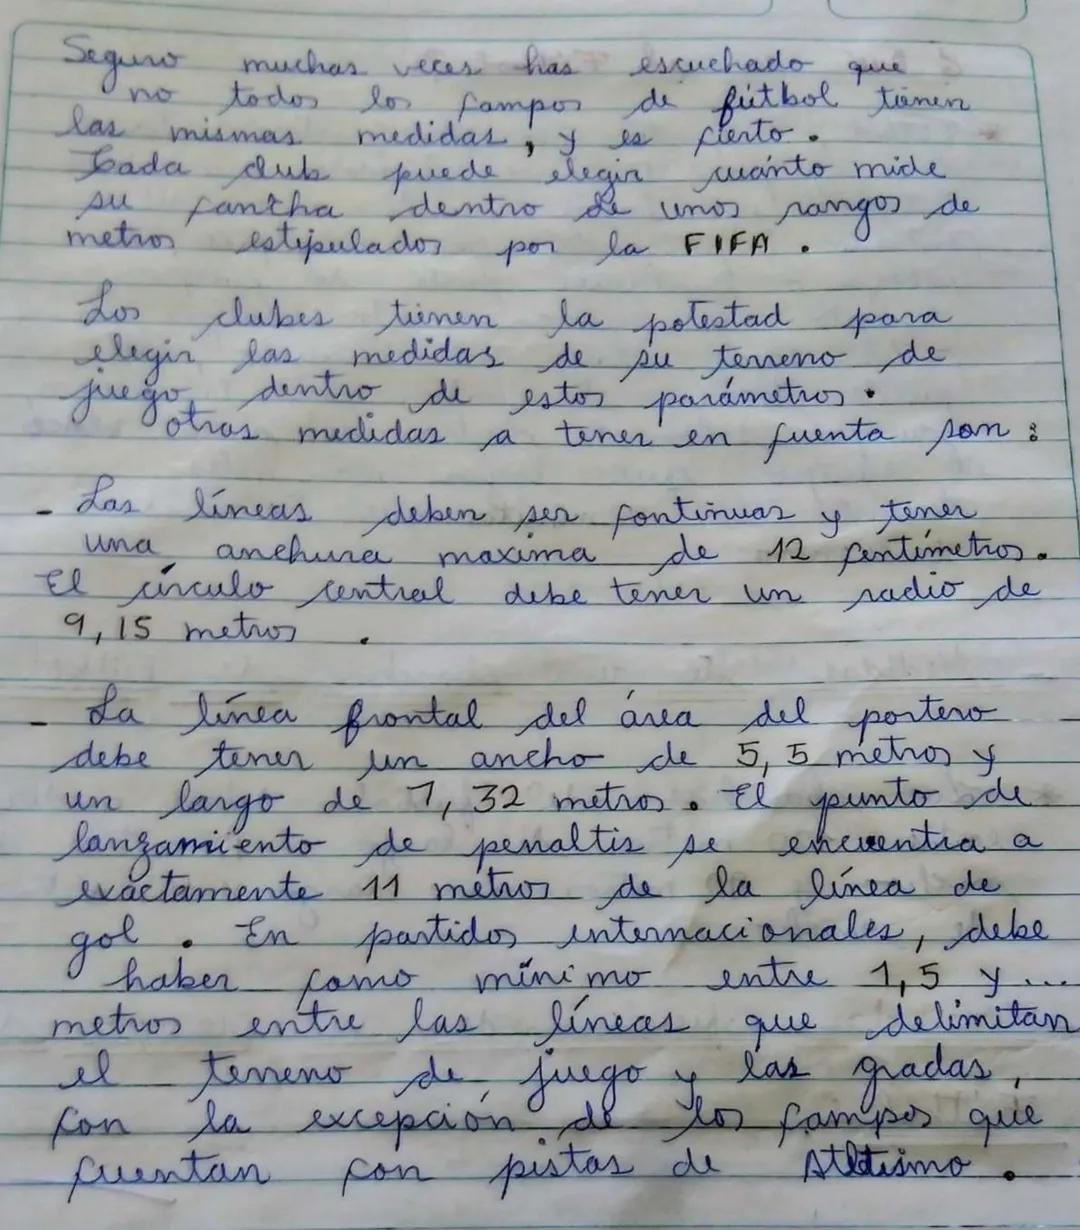 Seguro muchas veces has escuchado que
no todos los campos de fútbol tienen
las mismas medidas, y es cierto.
Cada club puede elegir cuánto mide
su cancha dentro de unos rangos de
metros estipulados por la FIFA.
Los clubes tienen la potestad para
elegir las medidas de su terreno de
juego, dentro de estos parámetros.
otras medidas a tener en cuenta son:
- Las líneas deben ser continuas y tener
una anchura maxima de 12 centímetros.
El círculo central debe tener un radio de
9,15 metros.
- La línea frontal del área del portero
debe tener un ancho de 5,5 metros y
un largo de 7,32 metros. El punto de
lanzamiento de penaltis se encuentra a
exáctamente 11 metros de la línea de
gol. En partidos internacionales, debe
haber como mínimo entre 1,5 y...
metros entre las líneas que delimitan
el terreno de juego y las gradas,
con la excepción de los campos que
cuentan con pistas de Atletismo.